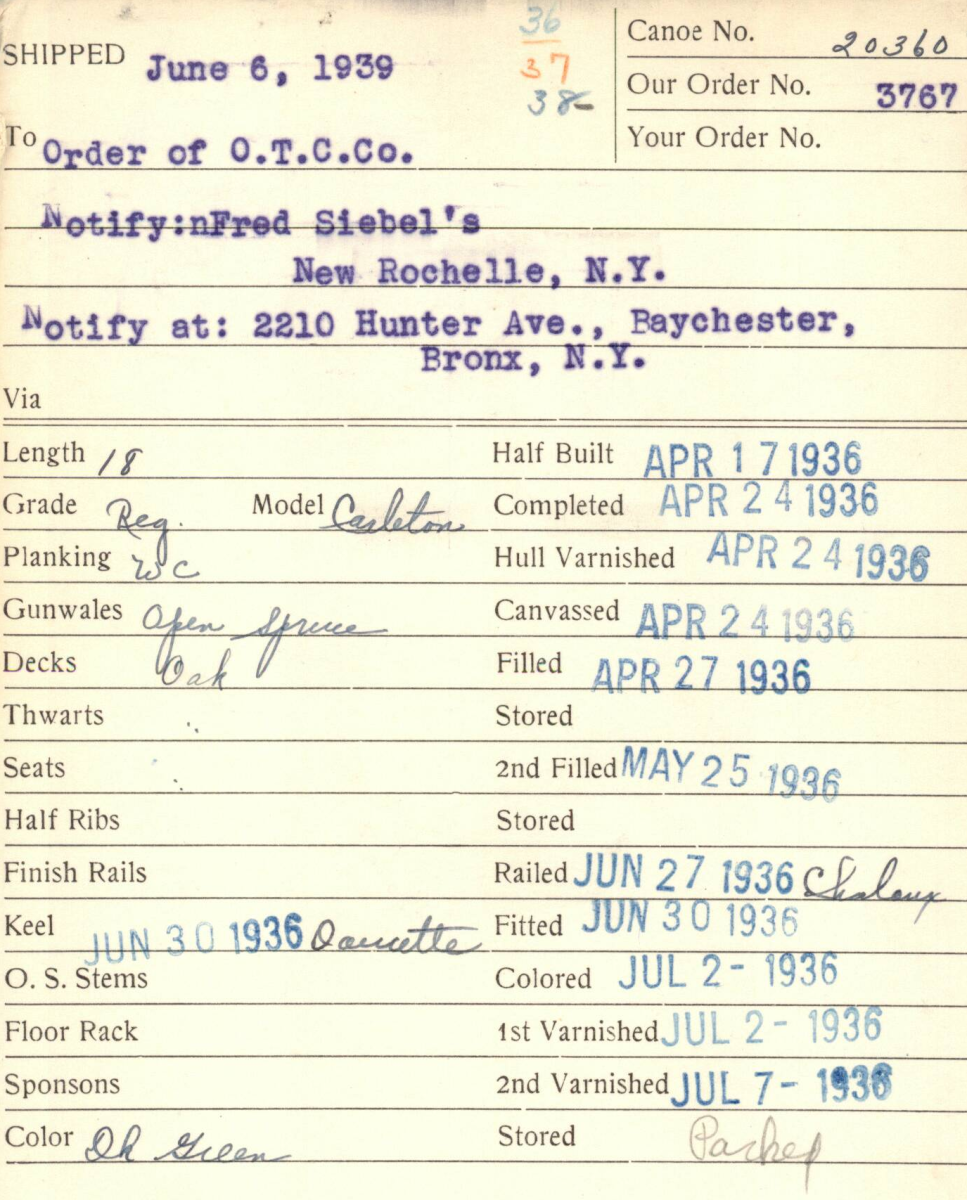 36
37
38-
SHIPPED June 6, 1939
Canoe No. 20360
Our Order No. 3767
Your Order No.
To Order of O.T.C.Co.
Notify:nFred Siebel's
New Rochelle, N.Y.
Notify at: 2210 Hunter Ave., Baychester,
Bronx, N.Y.
Via
Length 18 Half Built APR 17 1936
Grade Reg. Model Carleton Completed APR 24 1936
Planking WC Hull Varnished APR 24 1936
Gunwales Open Spruce Canvassed APR 24 1936
Decks Oak Filled APR 27 1936
Thwarts Stored
Seats 2nd Filled MAY 25 1936
Half Ribs Stored
Finish Rails Railed JUN 27 1936
Keel JUN 30 1936 Doucette Fitted JUN 30 1936
O. S. Stems Colored JUL 2- 1936
Floor Rack 1st Varnished JUL 2- 1936
Sponsons 2nd Varnished JUL 7- 1936
Color Dk Green Stored Packed